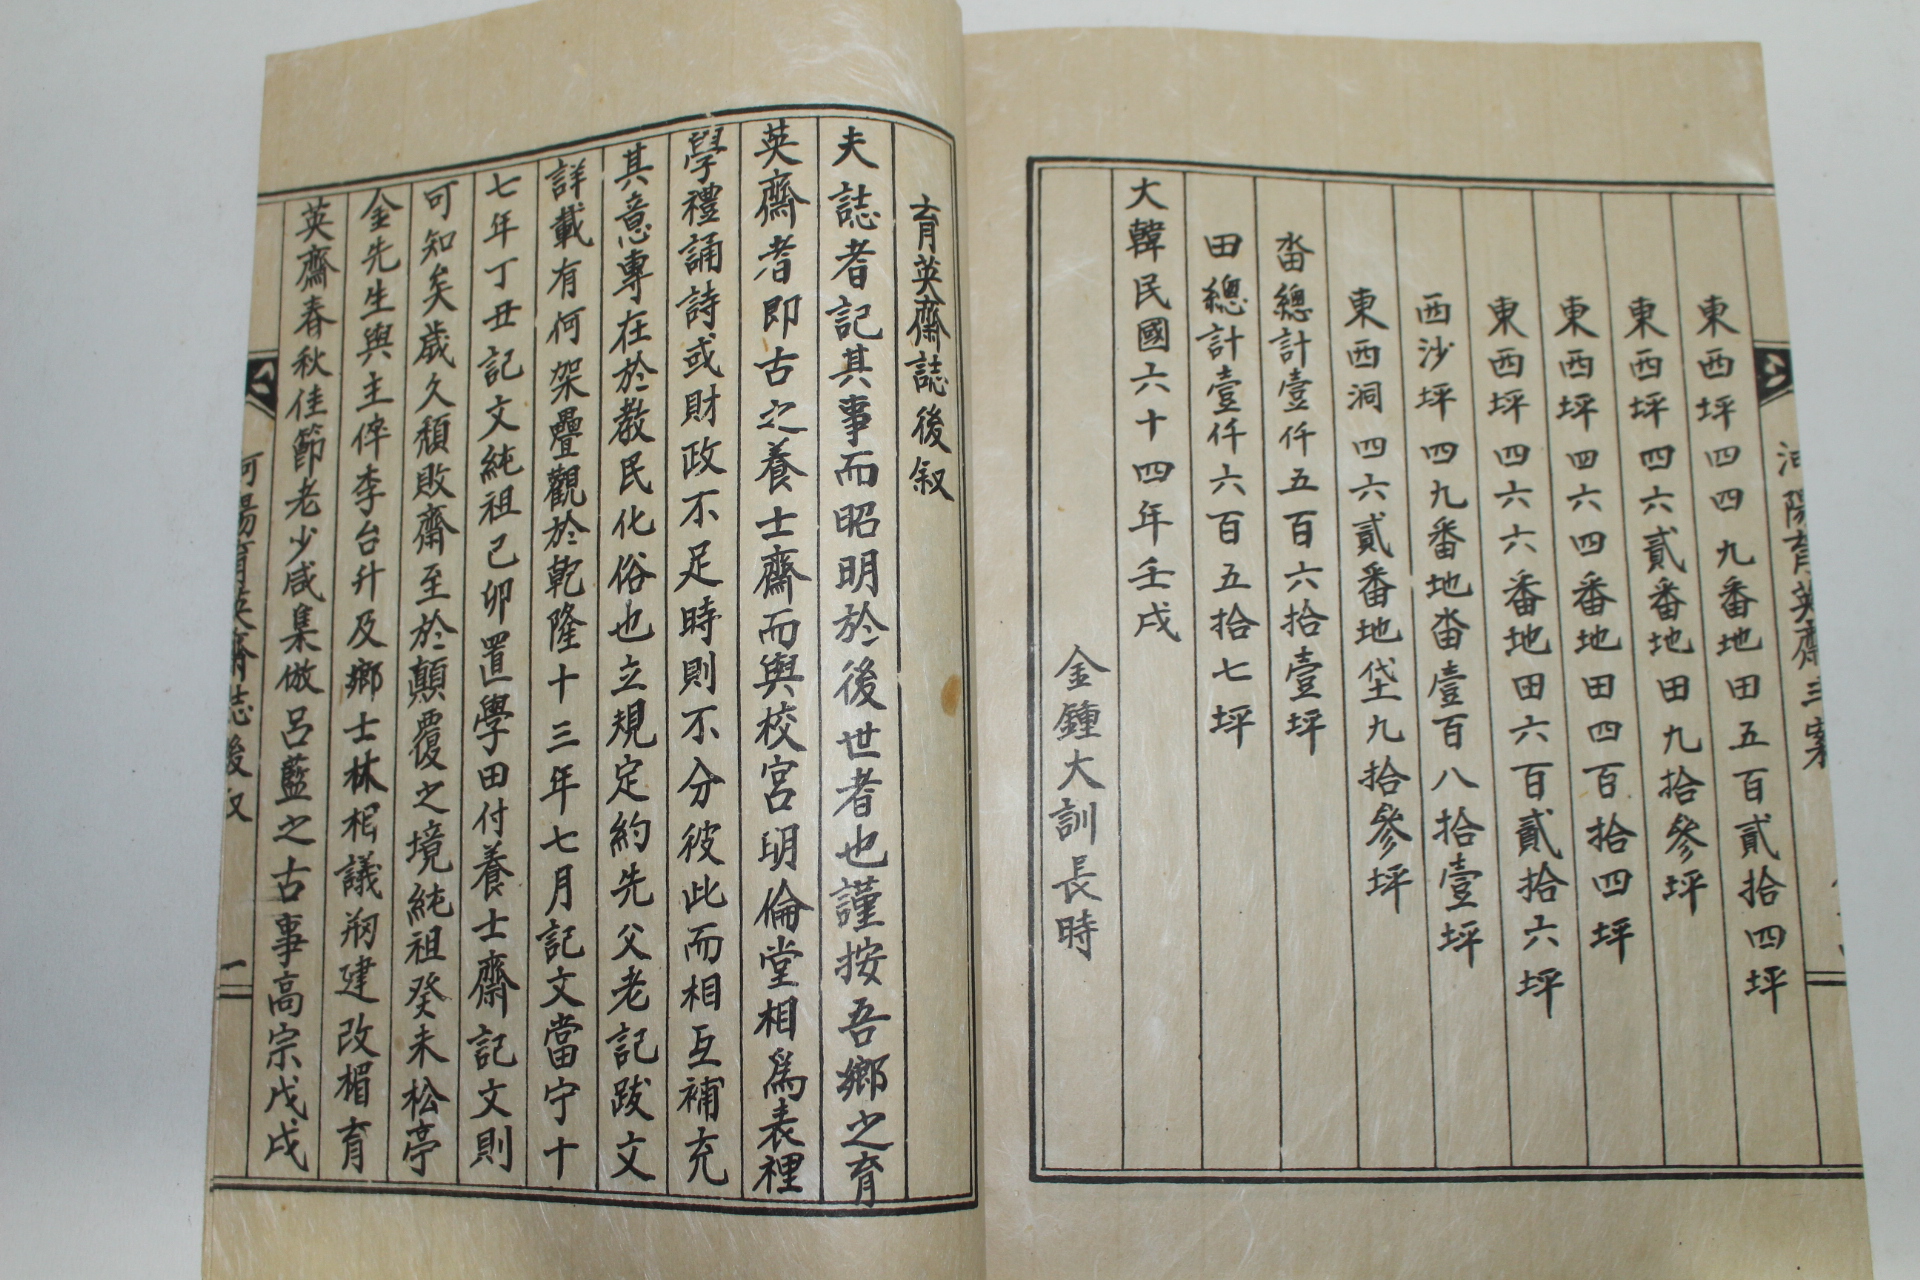 東西坪四四九番地田五百貳拾四坪
東西坪四六貳番地田九拾參坪
東西坪四六四番地田四百拾四坪
東西坪四六六番地田六百貳拾六坪
西沙坪四九番地畓壹百八拾壹坪
東西洞四六貳番地垈九拾參坪
畓總計壹仟五百六拾壹坪
田總計壹仟六百五拾七坪
大韓民國六十四年壬戌
金鍾大訓長時
育英齋誌後叙
夫誌者記其事而昭明於後世者也謹按吾鄉之育
英齋者即古之養士齋而與校宮明倫堂相爲表裡
學禮誦詩或財政不足時則不分彼此而相互補充
其意專在於敎民化俗也立規定約先父老記跋文
詳載有何架疊觀於乾隆十三年七月記文當宁十
七年丁丑記文純祖己卯置學田付養士齋記文則
可知矣歲久頹敗齋至於顚覆之境純祖癸未松亭
金先生與主倅李台升及鄉士林相議刱建改楣育
英齋春秋佳節老少咸集倣呂藍之古事高宗戊戌
育英齋誌後叙
二